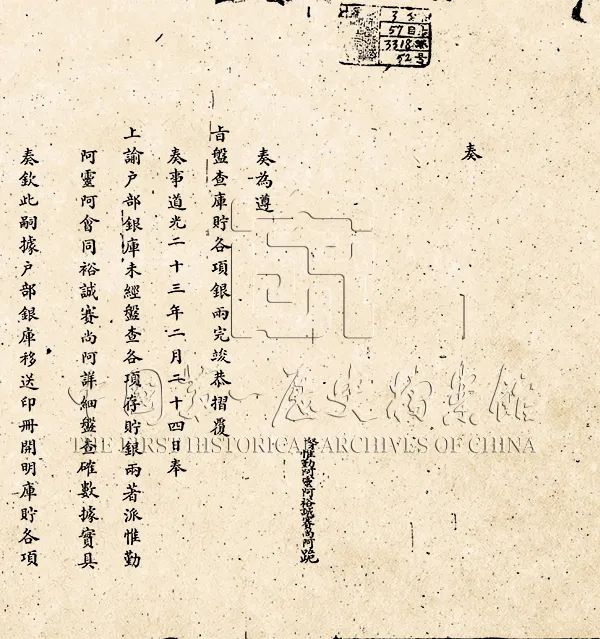 3 全
57 目
3318
52 号
奏
惟勤阿靈阿裕誠賽尚阿跪
奏為遵
旨盤查庫貯各項銀兩完竣恭摺覆
奏事道光二十三年二月二十四日奉
上諭户部銀庫未經盤查各項存貯銀兩著派惟勤
阿靈阿會同裕誠賽尚阿詳細盤查確數據實具
奏欽此嗣據户部銀庫移送印冊開明庫貯各項
中國第一歷史檔案館
THE FIRST HISTORICAL ARCHIVES OF CHINA